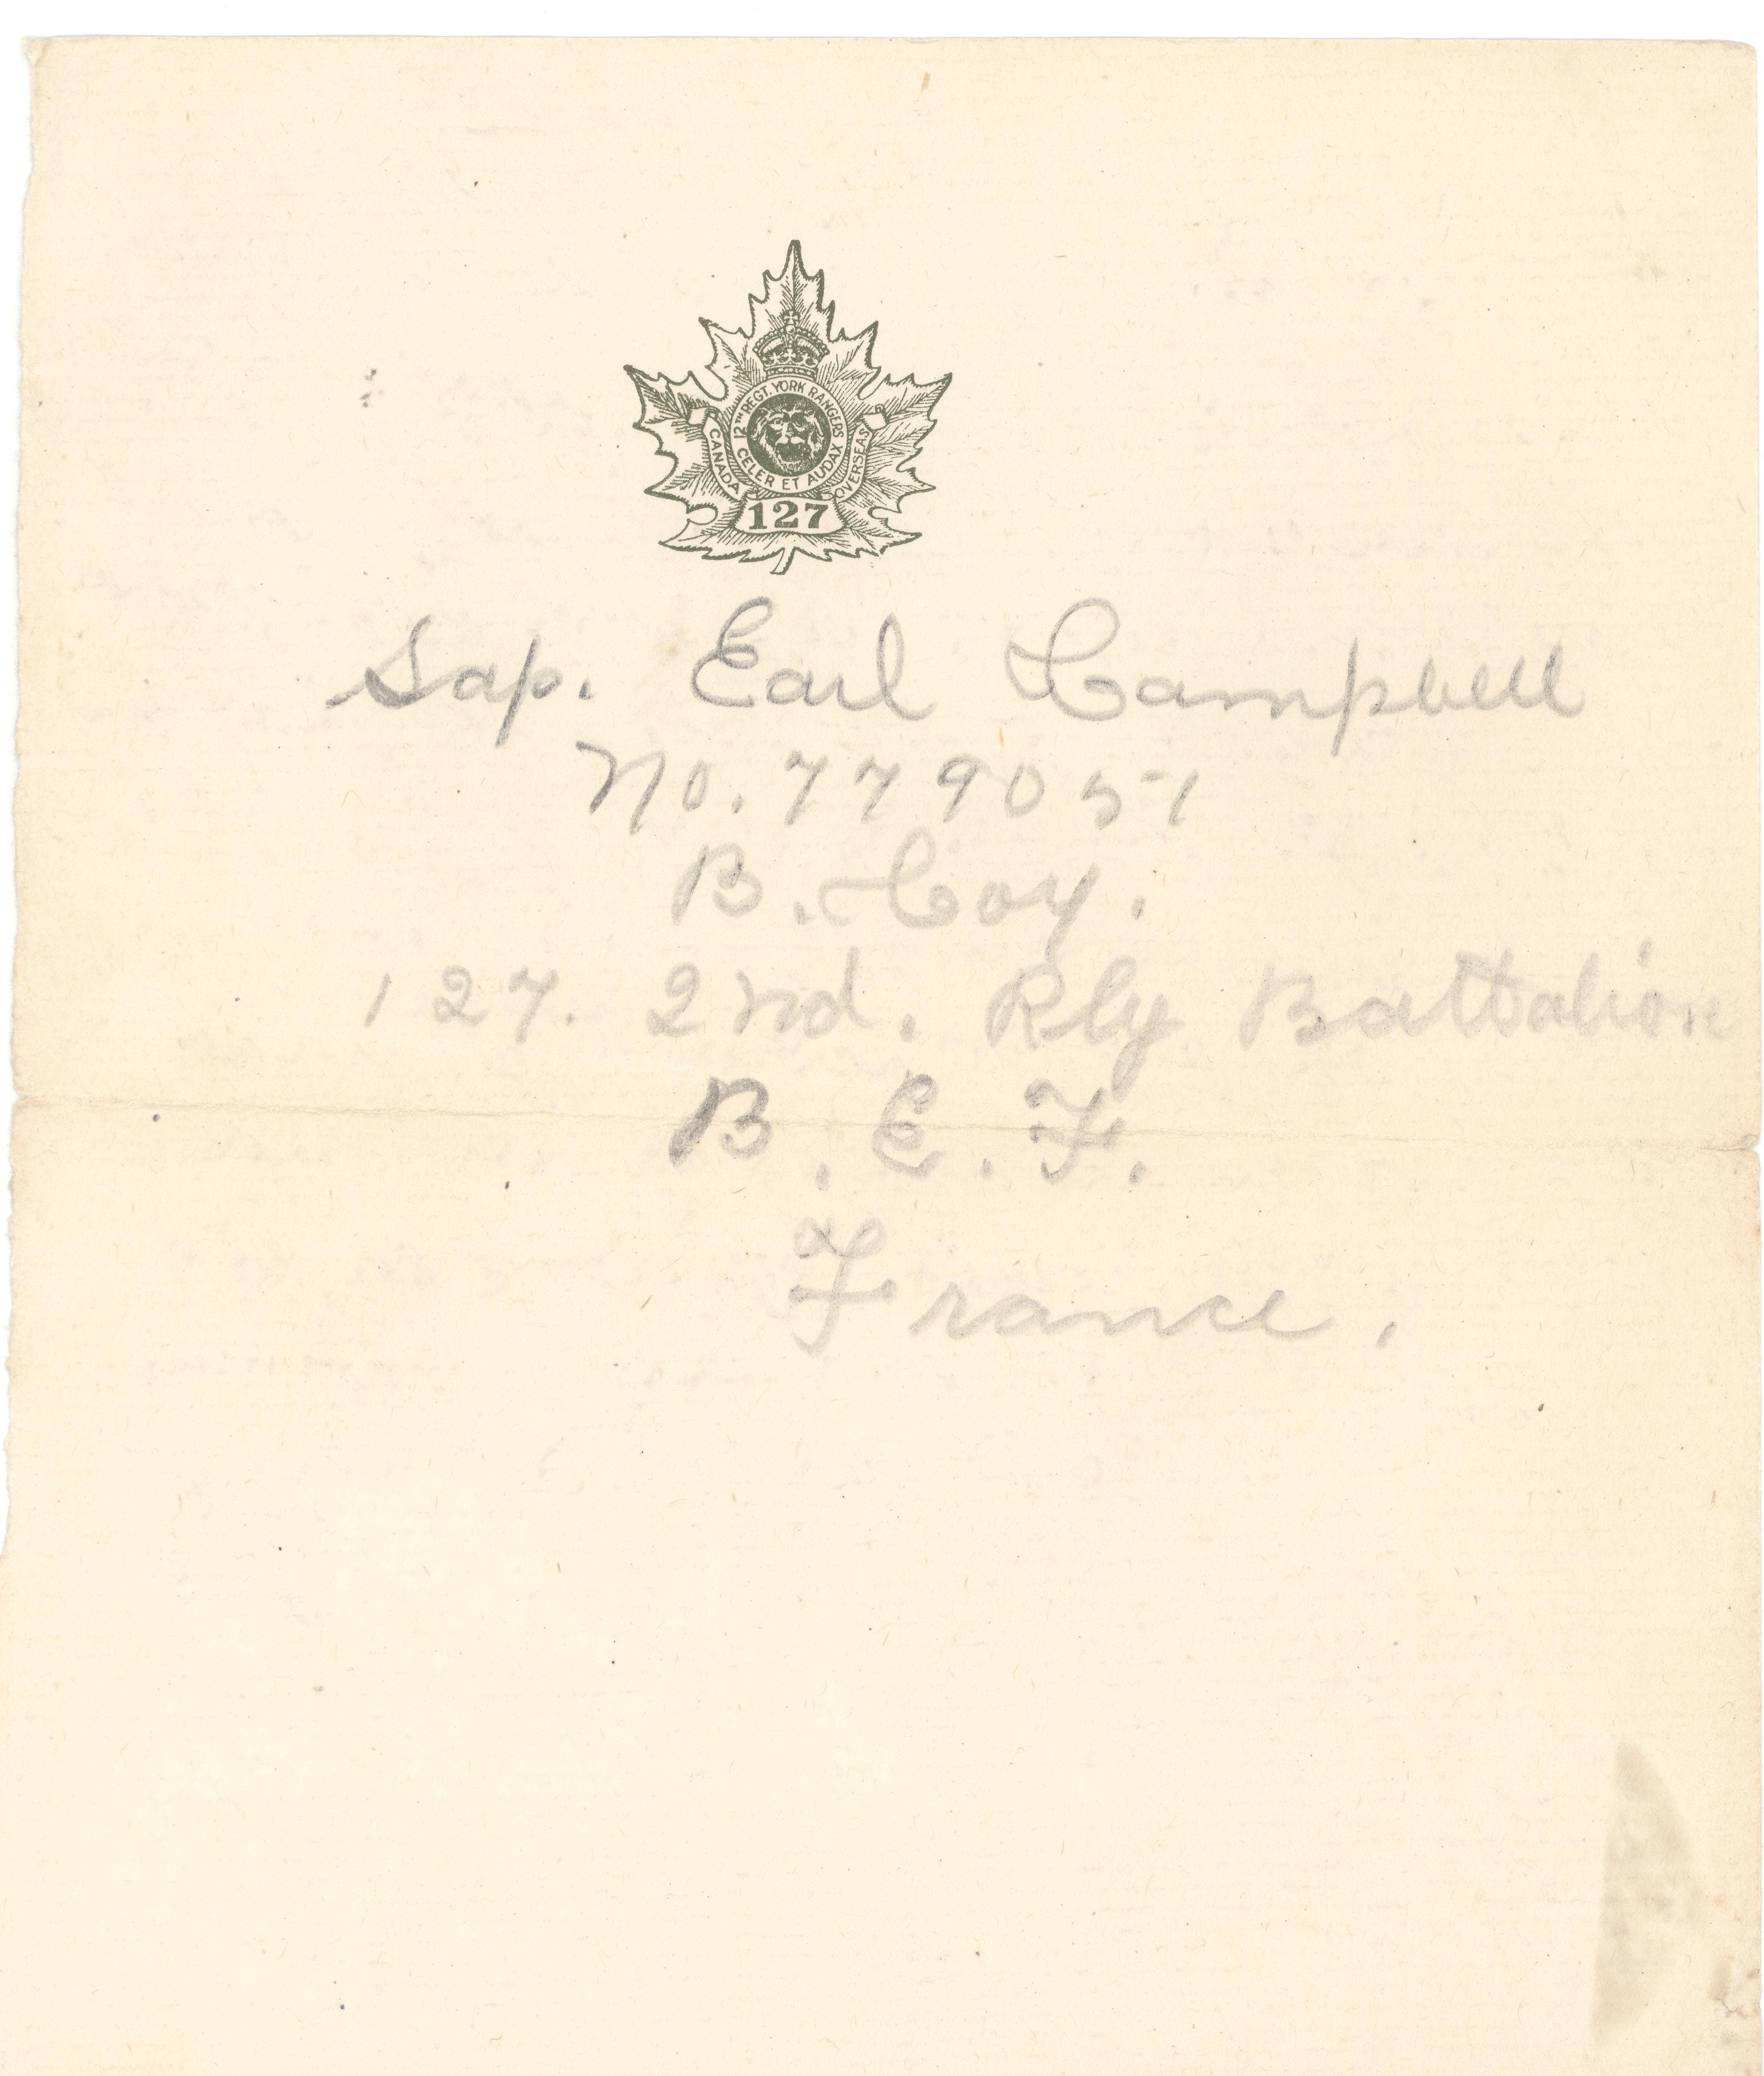 12TH REGT. YORK RANGERS
CELER ET AUDAX
CANADA
OVERSEAS
127
Sap. Earl Campbell
No. 779051
B. Coy.
127. 2nd. Rly Battalion
B. E. F.
France.